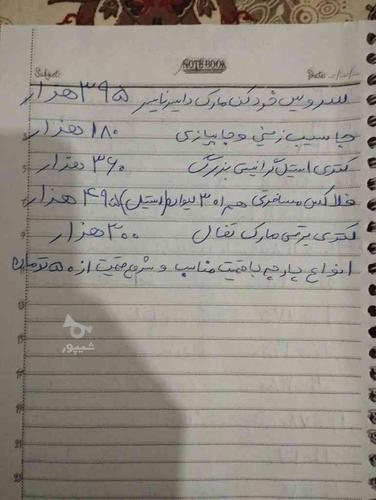 NOTE BOOK
Subject: Date: ../../..
سرویس خردکن مارک دایرنایس ۳۹۵ هزار
جا سیب زمینی و جا پیازی ۱۸۰ هزار
کتری استیل گرانیتی بزرگ ۳۶۰ هزار
فلاکس مسافرتی همراه ۳ لیوان (استیل) ۴۹۵ هزار
کتری برقی مارک تفال ۳۰۰ هزار
انواع پارچه با قیمت مناسب و شروع قیمت از ۵۰ تومان
شیپور